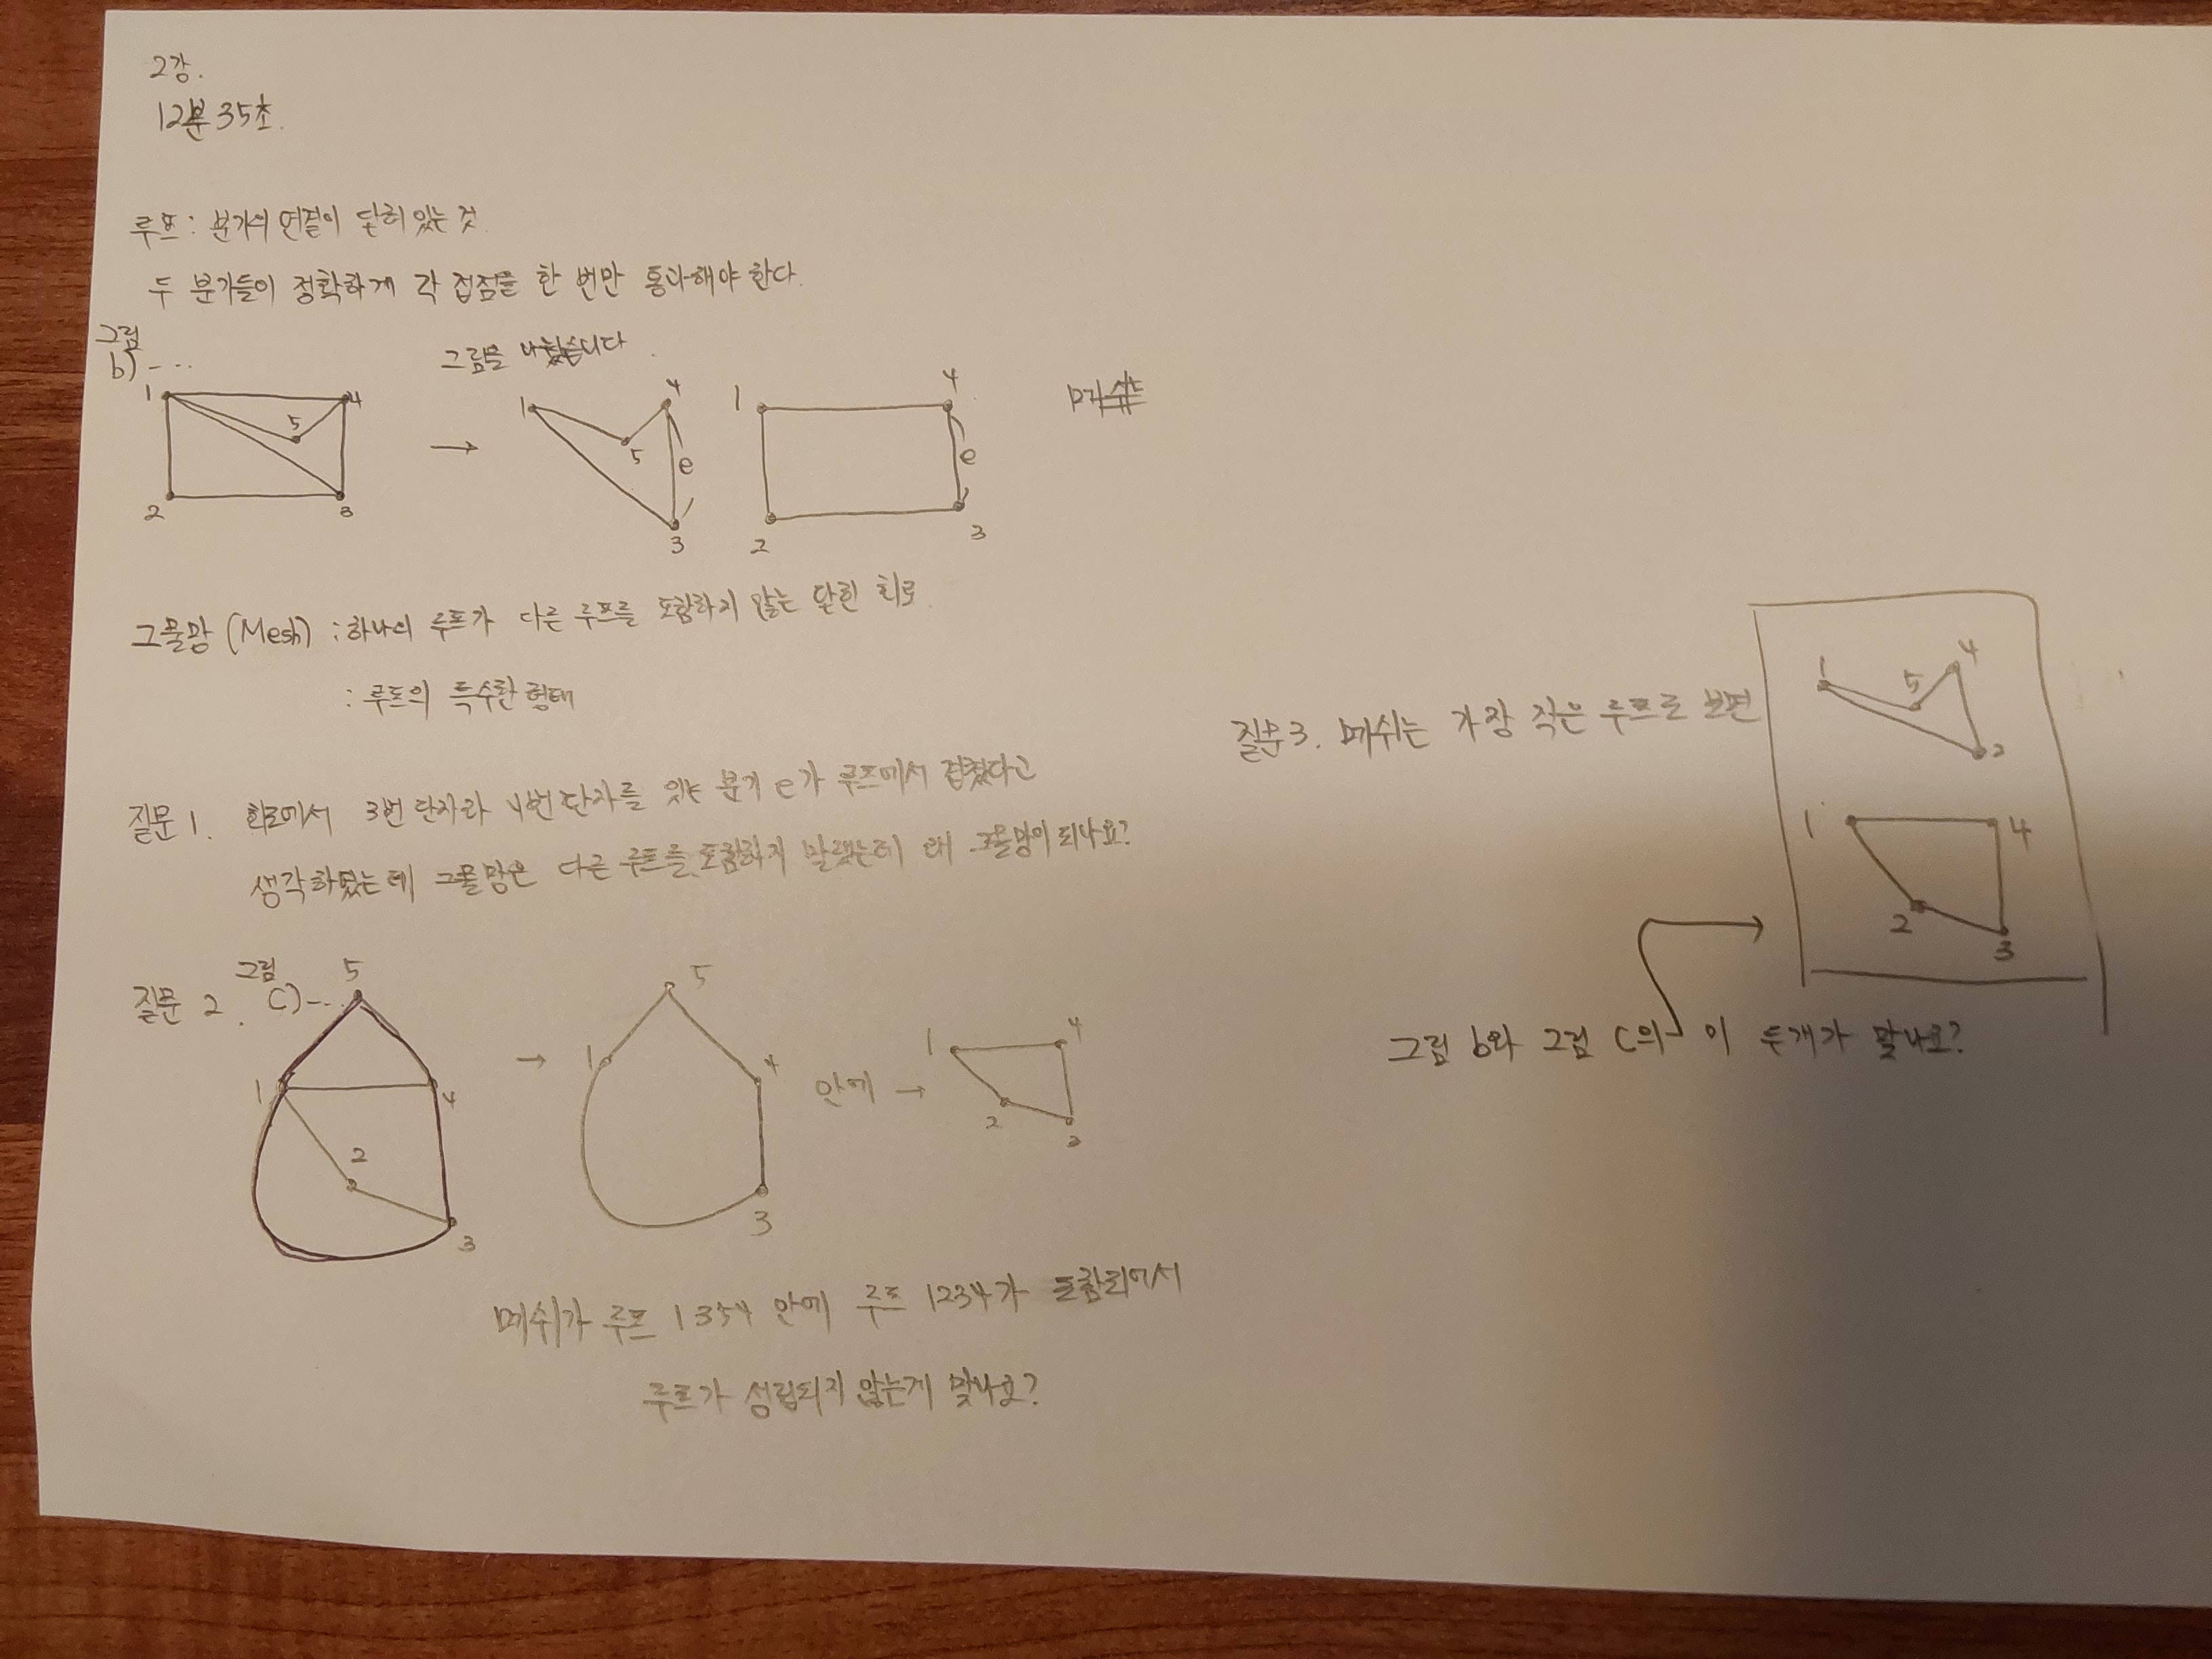 2강.
12분 35초.
루프 : 분기의 연결이 닫혀 있는 것.
두 분기들이 정확하게 각 접점을 한 번만 통과해야 한다.
그림
b) - ...
그림을 나눴습니다.
1 4 5 2 3
1 4 5 e 3
1 4 e 2 3
그물망 (Mesh) : 하나의 루프가 다른 루프를 포함하지 않는 닫힌 회로.
: 루프의 특수한 형태
질문 1. 회로에서 3번 단자와 4번 단자를 잇는 분기 e가 루프에서 겹쳤다고
생각하였는데 그물망은 다른 루프를 포함하지 말랬는데 왜 그물망이 되나요?
질문 2. 그림 c) - ...
5 1 4 2 3
5 1 4 3
안에 →
1 4 2 3
메쉬가 루프 1354 안에 루프 1234가 포함되어서
루프가 성립되지 않는게 맞나요?
질문 3. 메쉬는 가장 작은 루프로 보면
1 4 5 2
1 4 2 3
그림 b와 그림 c의 이 두개가 맞나요?